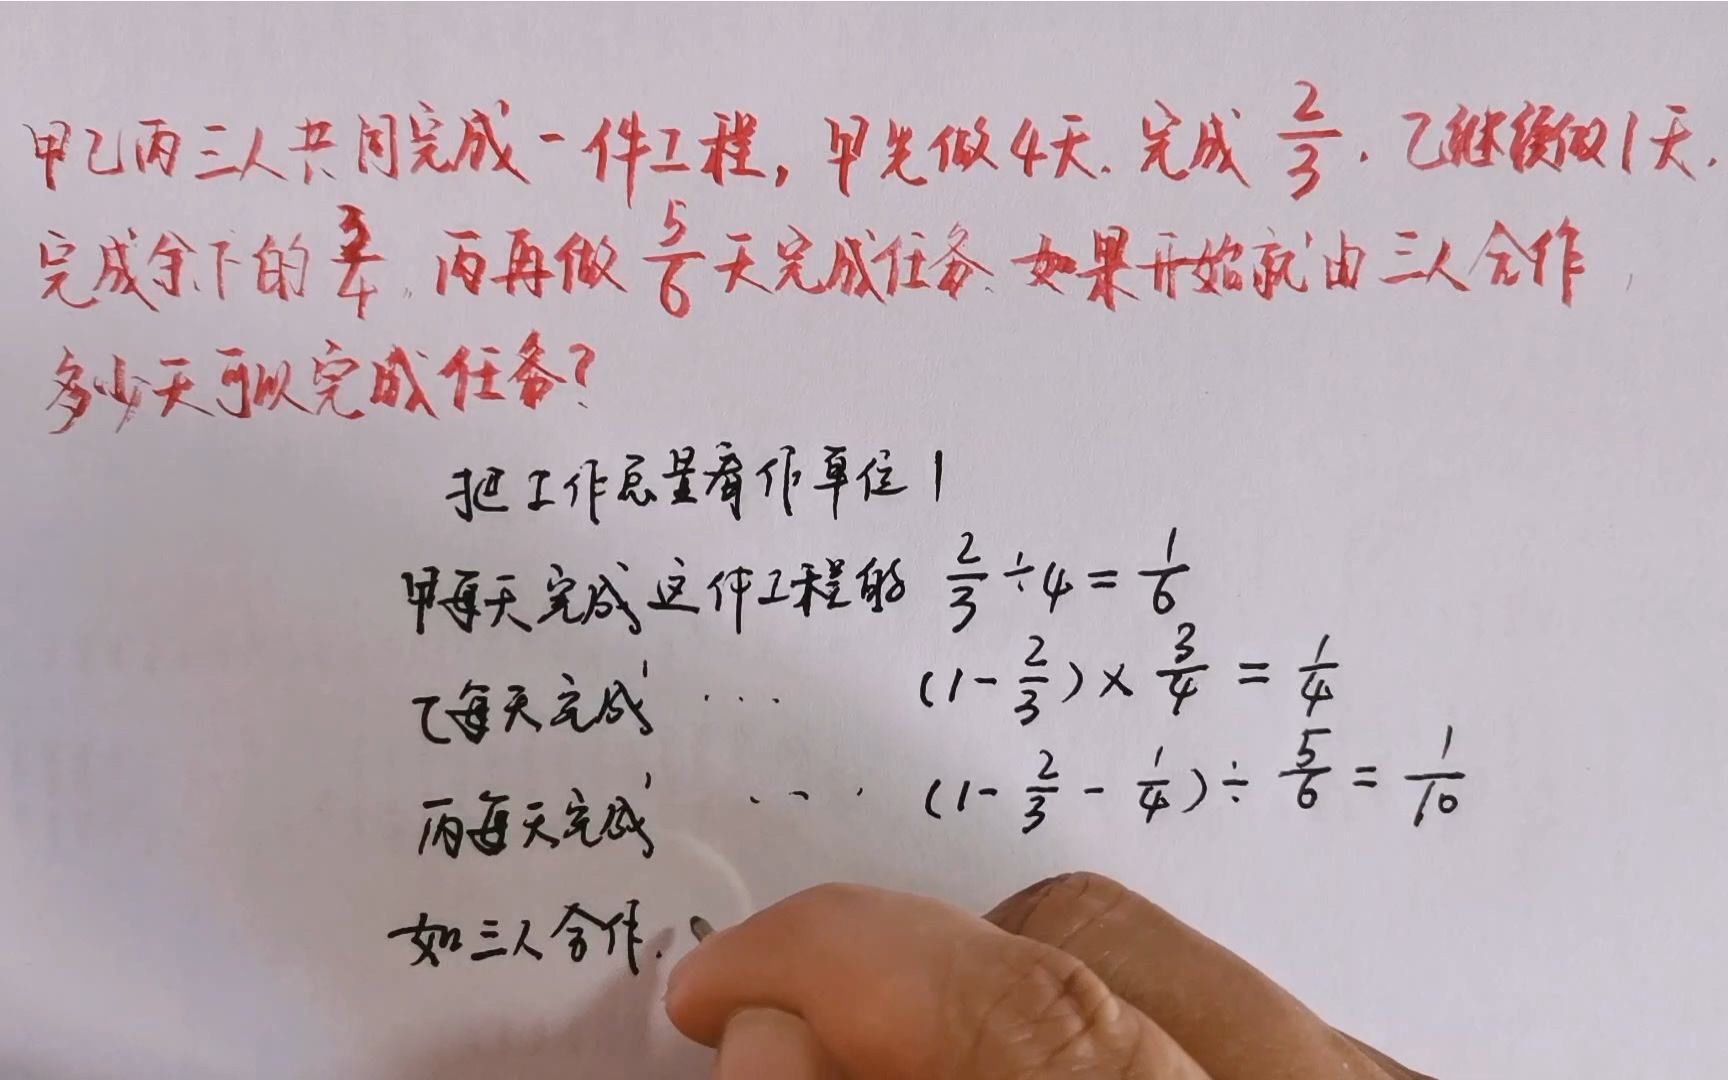 甲乙丙三人共同完成一件工程,甲先做4天.完成2/3.乙继续做1天.
完成余下的3/4,丙再做5/6天完成任务.如果开始就由三人合作,
多少天可以完成任务?
把工作总量看作单位1
甲每天完成这件工程的 2/3÷4=1/6
乙每天完成 ... (1-2/3)×3/4=1/4
丙每天完成 ... (1-2/3-1/4)÷5/6=1/10
如三人合作.